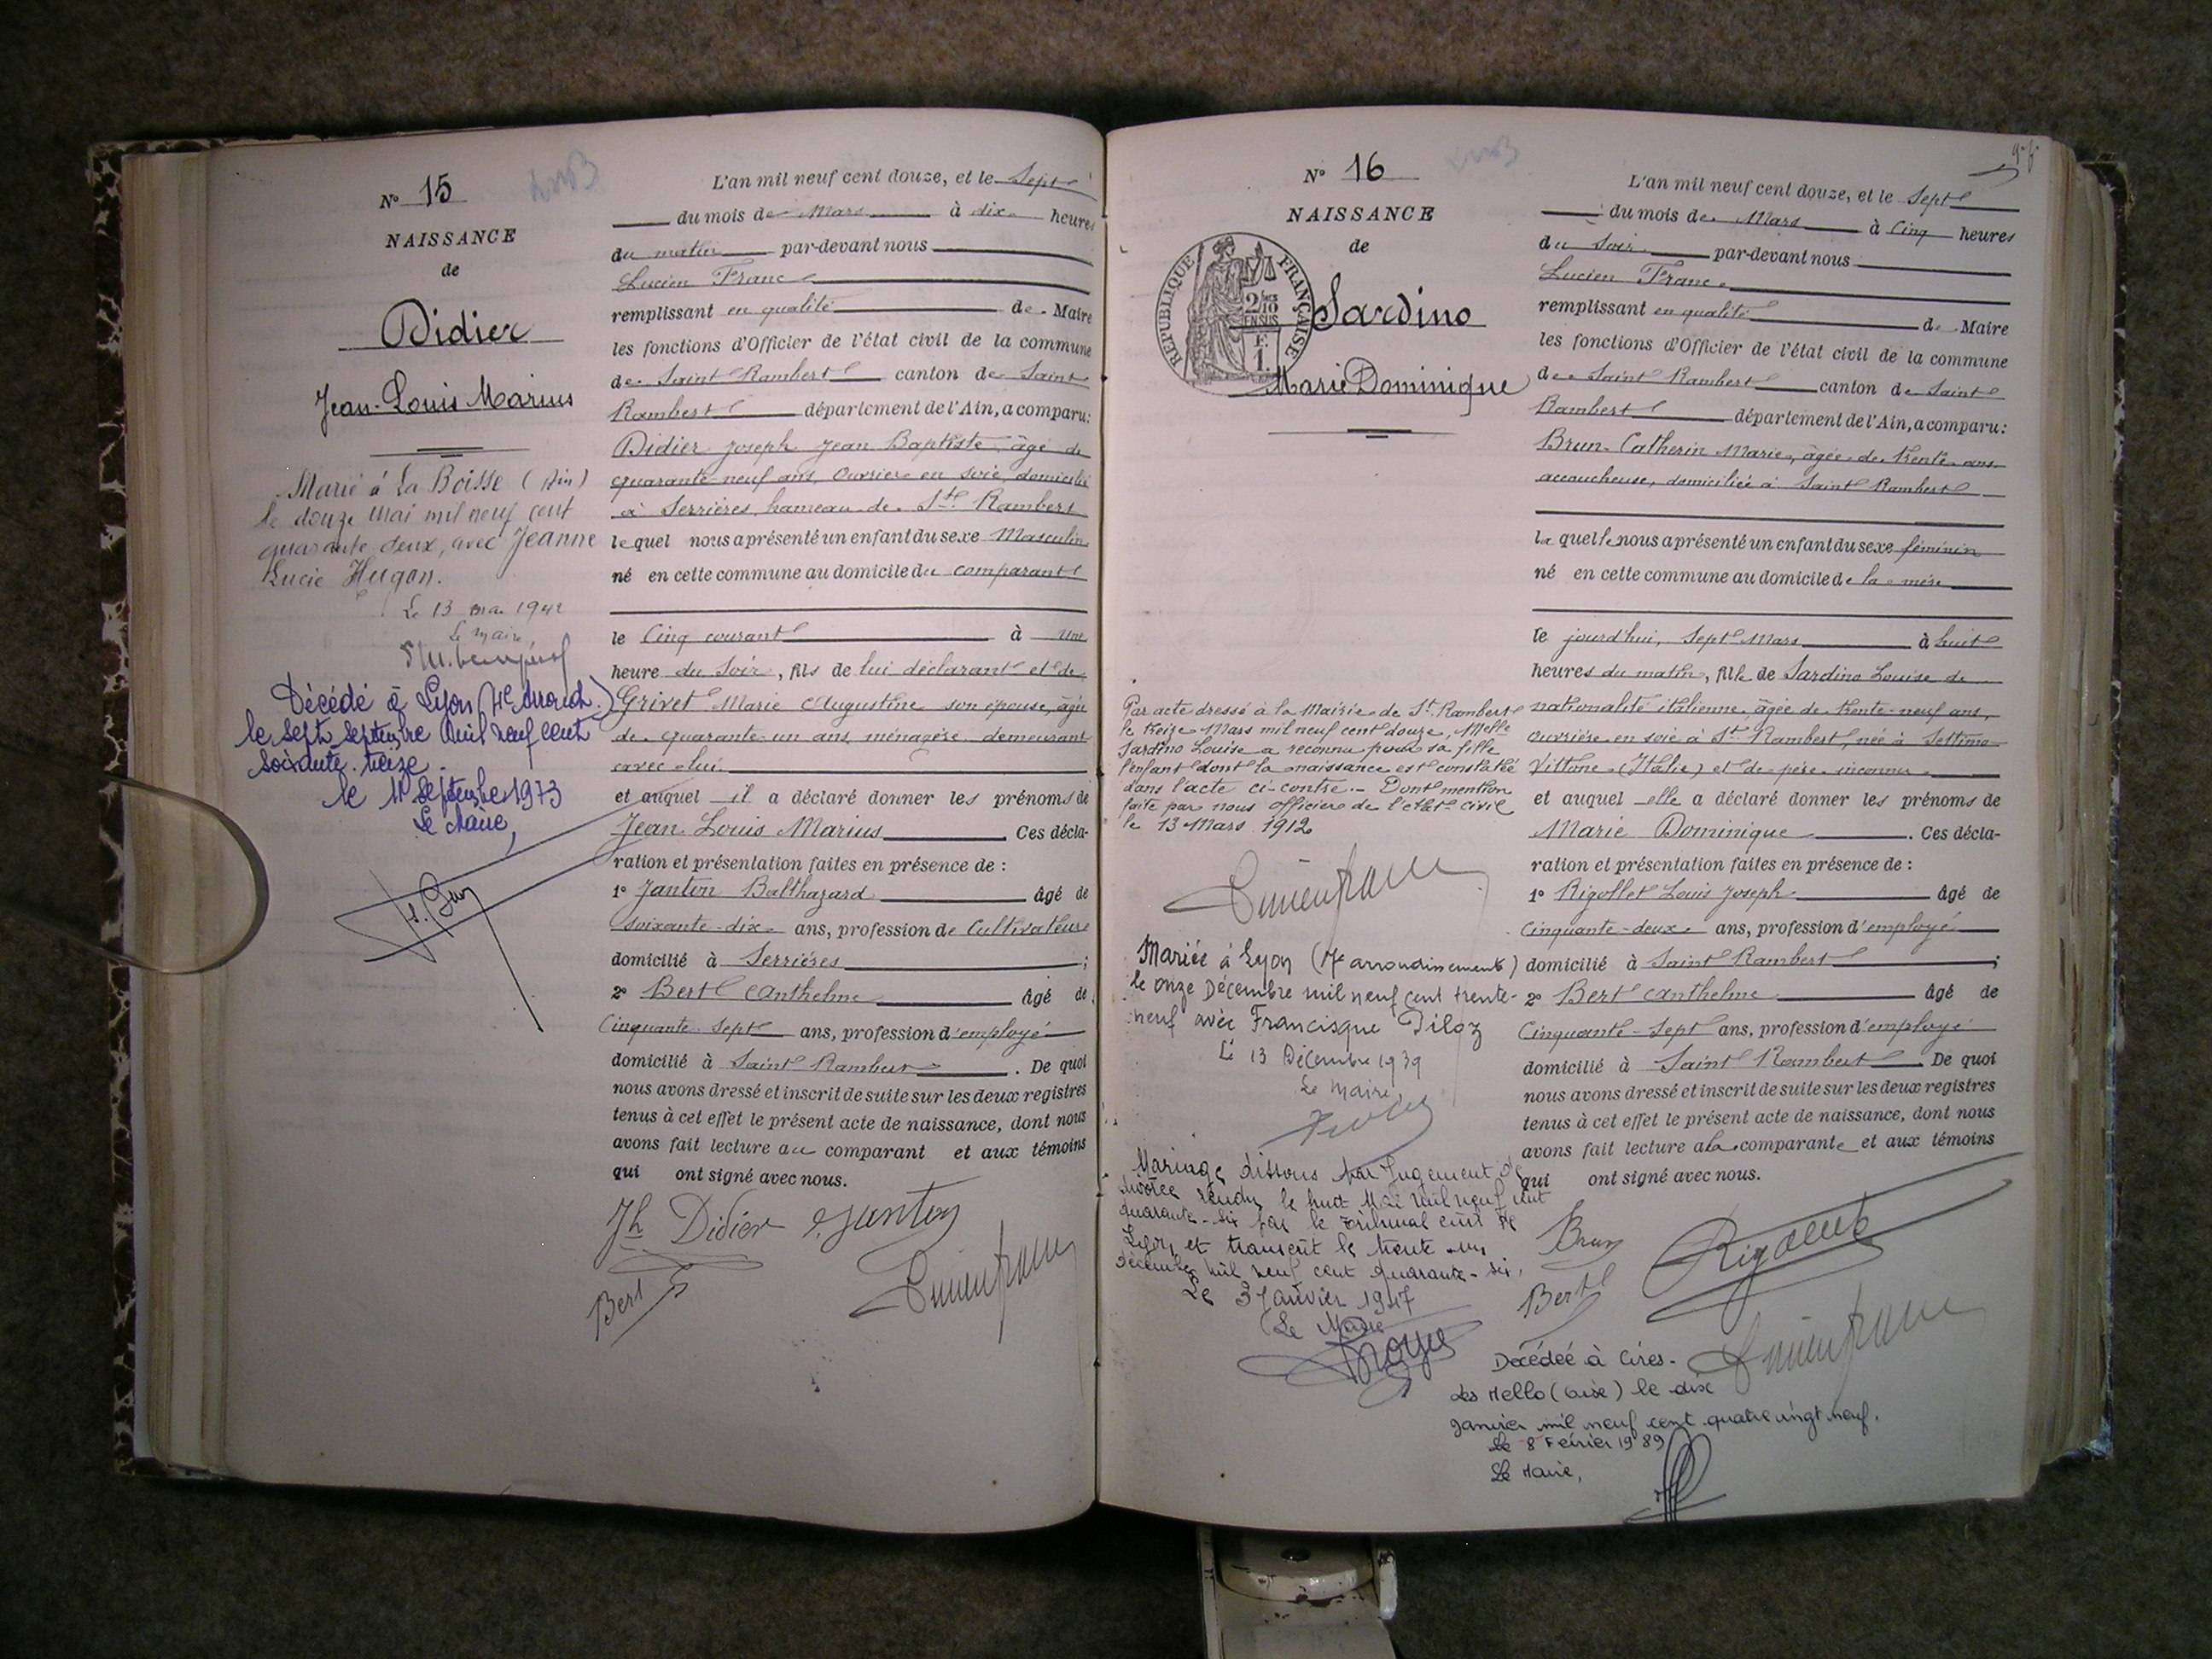 N° 15
NAISSANCE
de
Didier
Jean-Louis Marius
Marié à La Boisse (Ain)
le douze mai mil neuf cent
quarante deux, avec Jeanne
Lucie Hugon.
Le 13 mai 1942
Le maire
Décédé à Lyon (4e Arrond.)
le sept septembre mil neuf cent
soixante treize.
le 11 septembre 1973
Le Maire,
L'an mil neuf cent douze, et le Sept
du mois de Mars à dix heures
du matin par-devant nous
Lucien Franc
remplissant en qualité de Maire
les fonctions d'Officier de l'état civil de la commune
de Saint Rambert canton de Saint
Rambert département de l'Ain, a comparu:
Didier Joseph Jean Baptiste, âgé de
quarante neuf ans, Ouvrier en soie, domicilié
à Serrières, hameau de St Rambert
lequel nous a présenté un enfant du sexe Masculin
né en cette commune au domicile du comparant
le Cinq courant à une
heure du soir, fils de lui déclarant et de
Grivet Marie Augustine son épouse, âgée
de quarante un ans, ménagère, demeurant
avec lui
et auquel il a déclaré donner les prénoms de
Jean Louis Marius. Ces décla-
ration et présentation faites en présence de :
1° Janton Balthazard âgé de
soixante-dix ans, profession de Cultivateur
domicilié à Serrières ;
2° Bert Anthelme âgé de
Cinquante Sept ans, profession d'employé
domicilié à Saint Rambert. De quoi
nous avons dressé et inscrit de suite sur les deux registres
tenus à cet effet le présent acte de naissance, dont nous
avons fait lecture au comparant et aux témoins
qui ont signé avec nous.
Jh Didier Janton
Bert Lucien Franc
N° 16
NAISSANCE
de
RÉPUBLIQUE FRANÇAISE
2/10 EN SUS
F.
1.
Sardino
Marie Dominique
Par acte dressé à la Mairie de St Rambert
le treize Mars mil neuf cent douze, Melle
Sardino Louise a reconnu pour sa fille
l'enfant dont la naissance est constatée
dans l'acte ci-contre.- Dont mention
faite par nous officier de l'état-civil
le 13 Mars 1912
Lucien Franc
Mariée à Lyon (7e arrondissement)
le onze Décembre mil neuf cent trente-
neuf avec Francisque Piloz
Le 13 Décembre 1939
Le Maire,
Mariage dissous par Jugement de
divorce rendu le huit Mai mil neuf cent
quarante-six par le tribunal civil de
Lyon et transcrit le trente un
décembre mil neuf cent quarante-six.
Le 3 Janvier 1947
Le Maire
L'an mil neuf cent douze, et le Sept
du mois de Mars à Cinq heures
du soir par-devant nous
Lucien Franc
remplissant en qualité de Maire
les fonctions d'Officier de l'état civil de la commune
de Saint Rambert canton de Saint
Rambert département de l'Ain, a comparu:
Brun Catherin Marie, âgée de trente ans
accoucheuse, domiciliée à Saint Rambert
laquelle nous a présenté un enfant du sexe féminin
né en cette commune au domicile de la mère
le jourd'hui, Sept Mars à huit
heures du matin, fille de Sardino Louise de
nationalité italienne, âgée de trente-neuf ans,
ouvrière en soie à St Rambert, née à Settimo
Vittone (Italie) et de père inconnu
et auquel elle a déclaré donner les prénoms de
Marie Dominique. Ces décla-
ration et présentation faites en présence de :
1° Rigollet Louis Joseph âgé de
Cinquante-deux ans, profession d'employé
domicilié à Saint Rambert ;
2° Bert Anthelme âgé de
Cinquante-Sept ans, profession d'employé
domicilié à Saint Rambert. De quoi
nous avons dressé et inscrit de suite sur les deux registres
tenus à cet effet le présent acte de naissance, dont nous
avons fait lecture à la comparante et aux témoins
qui ont signé avec nous.
Brun Rigollet
Bert Lucien Franc
Décédée à Cires-
les Mello (Oise) le dix
janvier mil neuf cent quatre vingt neuf.
Le 8 Février 1989
Le Maire,